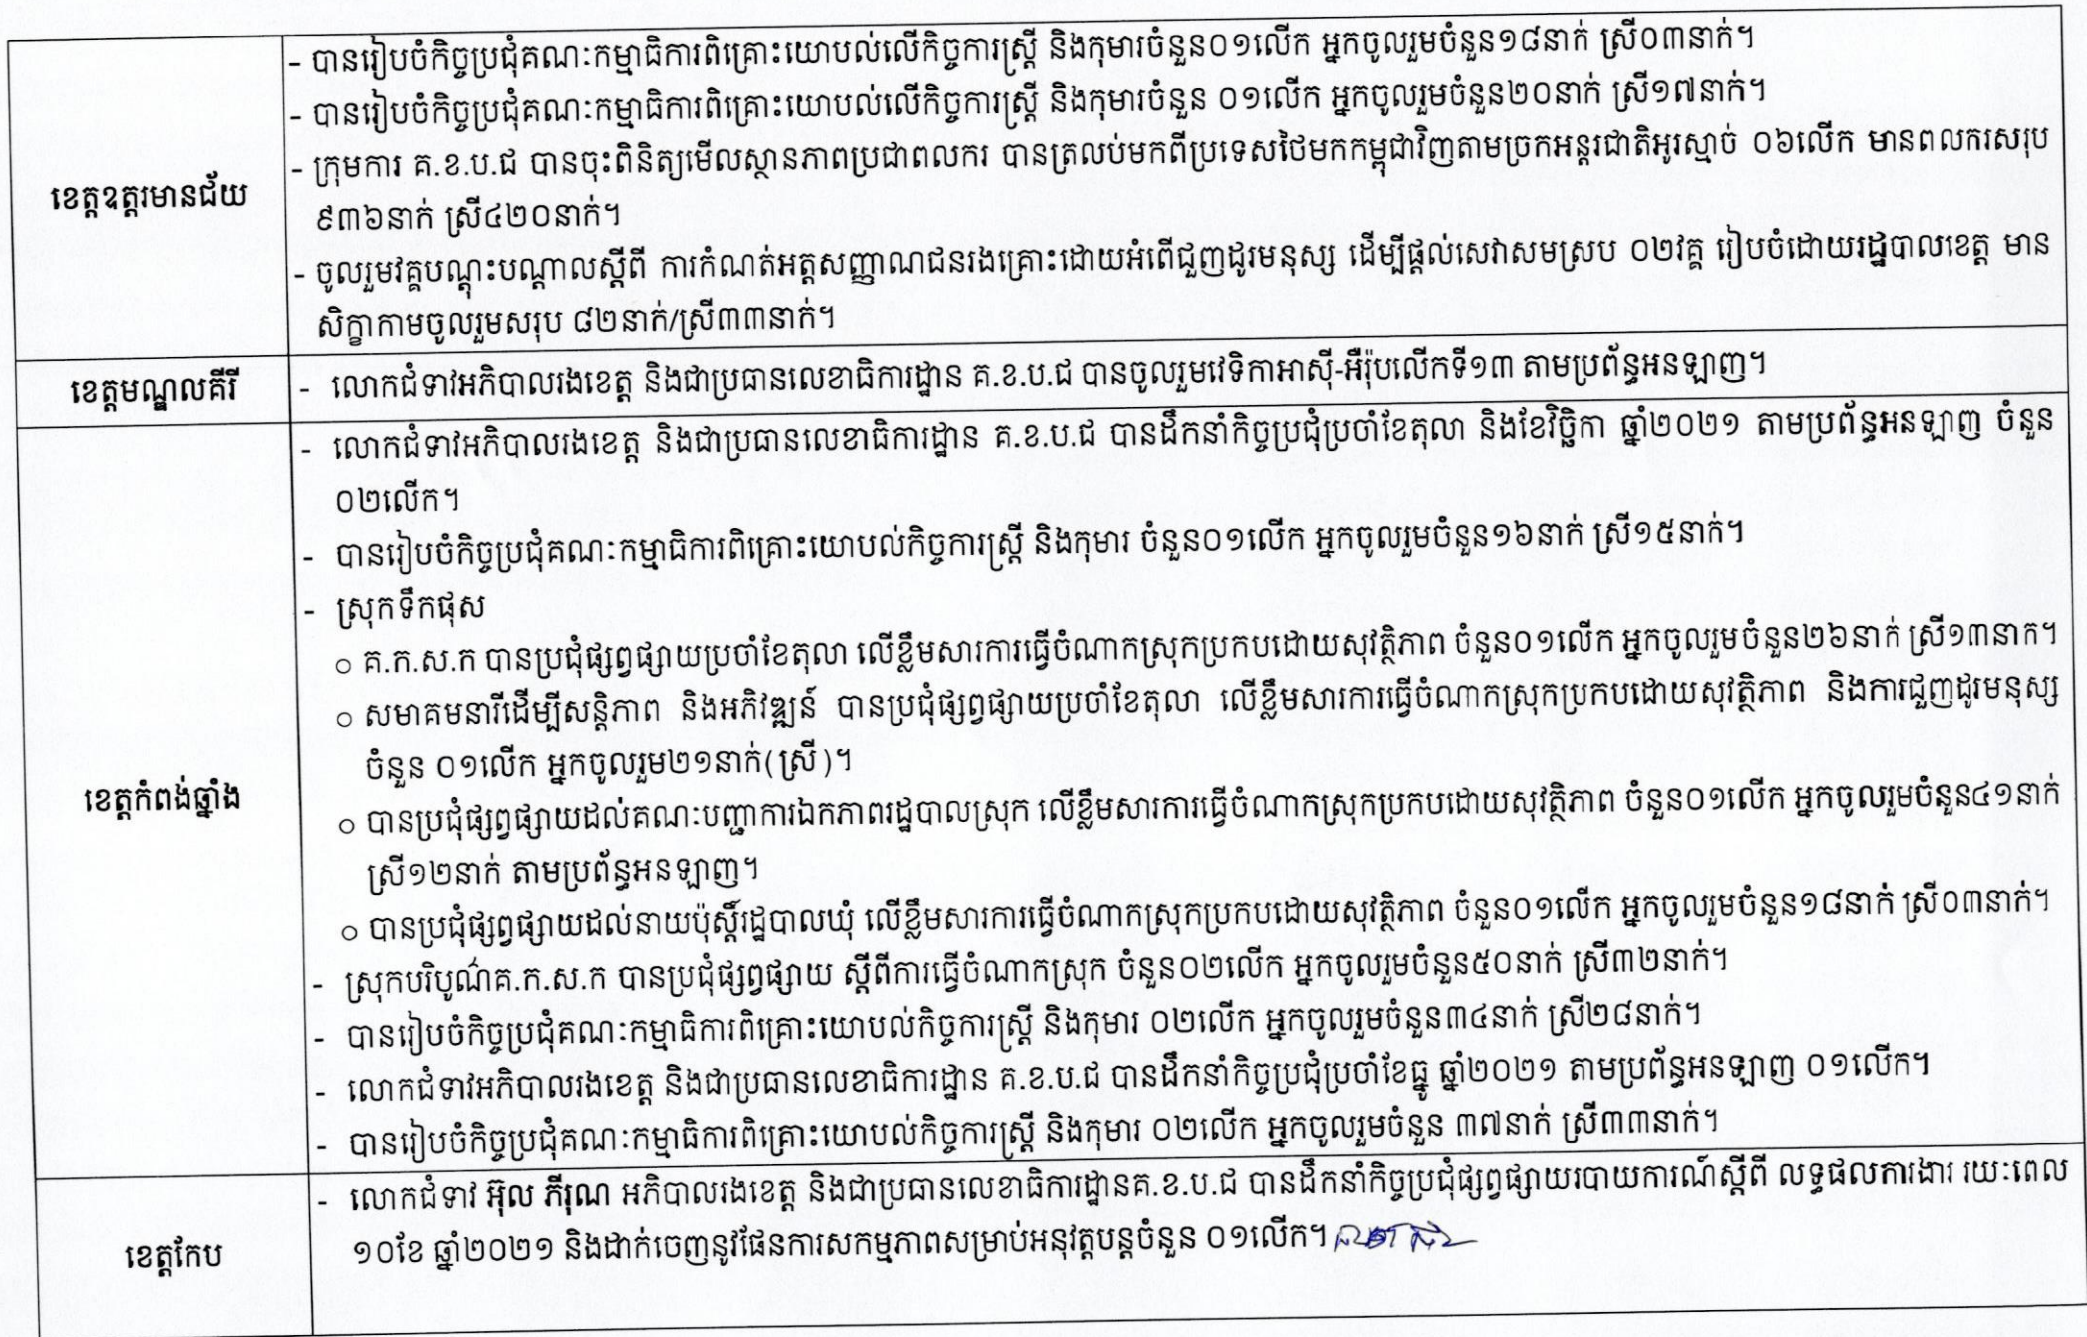 ខេត្តឧត្តរមានជ័យ
- បានរៀបចំកិច្ចប្រជុំគណៈកម្មាធិការពិគ្រោះយោបល់លើកិច្ចការស្ត្រី និងកុមារចំនួន០១លើក អ្នកចូលរួមចំនួន១៨នាក់ ស្រី០៣នាក់។
- បានរៀបចំកិច្ចប្រជុំគណៈកម្មាធិការពិគ្រោះយោបល់លើកិច្ចការស្ត្រី និងកុមារចំនួន ០១លើក អ្នកចូលរួមចំនួន២០នាក់ ស្រី១៧នាក់។
- ក្រុមការ គ.ខ.ប.ជ បានចុះពិនិត្យមើលស្ថានភាពប្រជាពលករ បានត្រលប់មកពីប្រទេសថៃមកកម្ពុជាវិញតាមច្រកអន្តរជាតិអូរស្មាច់ ០៦លើក មានពលករសរុប
៩៣៦នាក់ ស្រី៤២០នាក់។
- ចូលរួមវគ្គបណ្តុះបណ្តាលស្តីពី ការកំណត់អត្តសញ្ញាណជនរងគ្រោះដោយអំពើជួញដូរមនុស្ស ដើម្បីផ្តល់សេវាសមស្រប ០២វគ្គ រៀបចំដោយរដ្ឋបាលខេត្ត មាន
សិក្ខាកាមចូលរួមសរុប ៨២នាក់/ស្រី៣៣នាក់។
ខេត្តមណ្ឌលគីរី
- លោកជំទាវអភិបាលរងខេត្ត និងជាប្រធានលេខាធិការដ្ឋាន គ.ខ.ប.ជ បានចូលរួមវេទិកាអាស៊ី-អឺរ៉ុបលើកទី១៣ តាមប្រព័ន្ធអនឡាញ។
ខេត្តកំពង់ឆ្នាំង
- លោកជំទាវអភិបាលរងខេត្ត និងជាប្រធានលេខាធិការដ្ឋាន គ.ខ.ប.ជ បានដឹកនាំកិច្ចប្រជុំប្រចាំខែតុលា និងខែវិច្ឆិកា ឆ្នាំ២០២១ តាមប្រព័ន្ធអនឡាញ ចំនួន
០២លើក។
- បានរៀបចំកិច្ចប្រជុំគណៈកម្មាធិការពិគ្រោះយោបល់កិច្ចការស្ត្រី និងកុមារ ចំនួន០១លើក អ្នកចូលរួមចំនួន១៦នាក់ ស្រី១៥នាក់។
- ស្រុកទឹកផុស
○ គ.ក.ស.ក បានប្រជុំផ្សព្វផ្សាយប្រចាំខែតុលា លើខ្លឹមសារការធ្វើចំណាកស្រុកប្រកបដោយសុវត្ថិភាព ចំនួន០១លើក អ្នកចូលរួមចំនួន២៦នាក់ ស្រី១៣នាក។
○ សមាគមនារីដើម្បីសន្តិភាព និងអភិវឌ្ឍន៍ បានប្រជុំផ្សព្វផ្សាយប្រចាំខែតុលា លើខ្លឹមសារការធ្វើចំណាកស្រុកប្រកបដោយសុវត្ថិភាព និងការជួញដូរមនុស្ស
ចំនួន ០១លើក អ្នកចូលរួម២១នាក់(ស្រី)។
○ បានប្រជុំផ្សព្វផ្សាយដល់គណៈបញ្ជាការឯកភាពរដ្ឋបាលស្រុក លើខ្លឹមសារការធ្វើចំណាកស្រុកប្រកបដោយសុវត្ថិភាព ចំនួន០១លើក អ្នកចូលរួមចំនួន៤១នាក់
ស្រី១២នាក់ តាមប្រព័ន្ធអនឡាញ។
○ បានប្រជុំផ្សព្វផ្សាយដល់នាយប៉ុស្តិ៍រដ្ឋបាលឃុំ លើខ្លឹមសារការធ្វើចំណាកស្រុកប្រកបដោយសុវត្ថិភាព ចំនួន០១លើក អ្នកចូលរួមចំនួន១៨នាក់ ស្រី០៣នាក់។
- ស្រុកបរិបូណ៌គ.ក.ស.ក បានប្រជុំផ្សព្វផ្សាយ ស្តីពីការធ្វើចំណាកស្រុក ចំនួន០២លើក អ្នកចូលរួមចំនួន៥០នាក់ ស្រី៣២នាក់។
- បានរៀបចំកិច្ចប្រជុំគណៈកម្មាធិការពិគ្រោះយោបល់កិច្ចការស្ត្រី និងកុមារ ០២លើក អ្នកចូលរួមចំនួន៣៤នាក់ ស្រី២៨នាក់។
- លោកជំទាវអភិបាលរងខេត្ត និងជាប្រធានលេខាធិការដ្ឋាន គ.ខ.ប.ជ បានដឹកនាំកិច្ចប្រជុំប្រចាំខែធ្នូ ឆ្នាំ២០២១ តាមប្រព័ន្ធអនឡាញ ០១លើក។
- បានរៀបចំកិច្ចប្រជុំគណៈកម្មាធិការពិគ្រោះយោបល់កិច្ចការស្ត្រី និងកុមារ ០២លើក អ្នកចូលរួមចំនួន ៣៧នាក់ ស្រី៣៣នាក់។
ខេត្តកែប
- លោកជំទាវ អ៊ុល ភីរុណ អភិបាលរងខេត្ត និងជាប្រធានលេខាធិការដ្ឋានគ.ខ.ប.ជ បានដឹកនាំកិច្ចប្រជុំផ្សព្វផ្សាយរបាយការណ៍ស្តីពី លទ្ធផលការងារ រយៈពេល
១០ខែ ឆ្នាំ២០២១ និងដាក់ចេញនូវផែនការសកម្មភាពសម្រាប់អនុវត្តបន្តចំនួន ០១លើក។